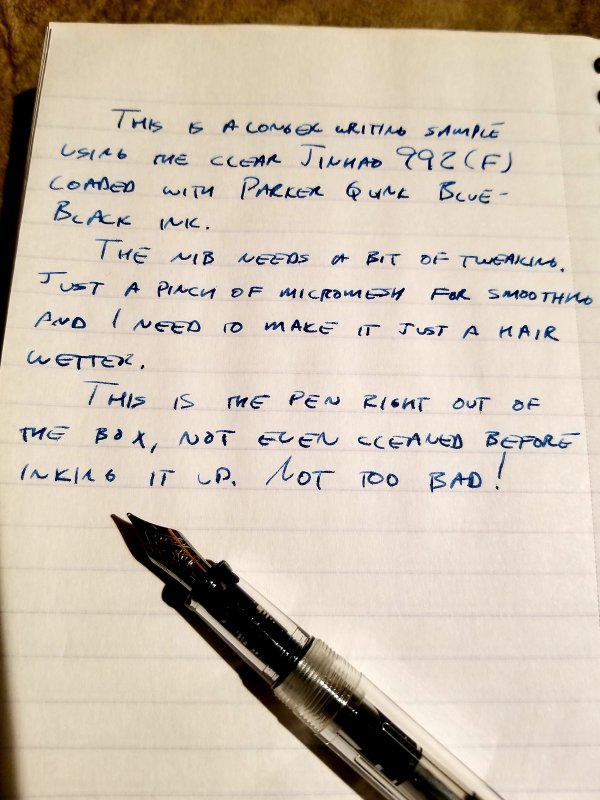 THIS IS A LONGER WRITING SAMPLE
USING THE CLEAR JINHAO 992 (F)
LOADED WITH PARKER QUINK BLUE-
BLACK INK.
THE NIB NEEDS A BIT OF TWEAKING.
JUST A PINCH OF MICROMESH FOR SMOOTHING
AND I NEED TO MAKE IT JUST A HAIR
WETTER.
THIS IS THE PEN RIGHT OUT OF
THE BOX, NOT EVEN CLEANED BEFORE
INKING IT UP. NOT TOO BAD!